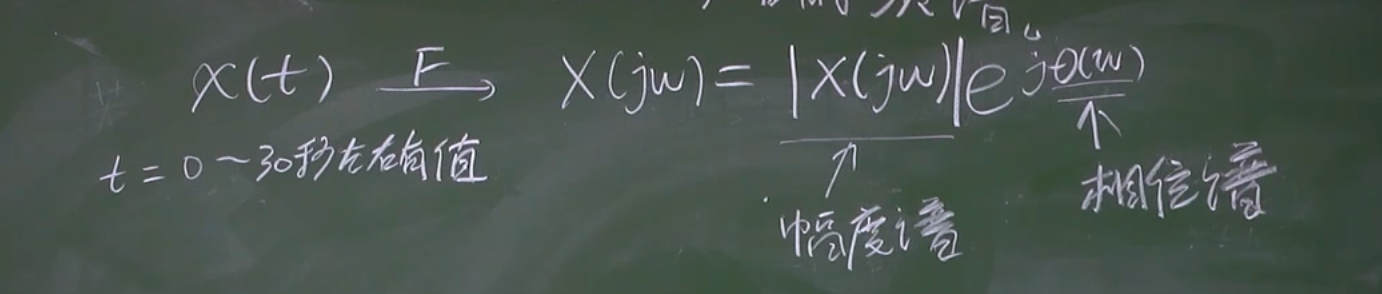 x(t) \xrightarrow{F} X(jw) = |X(jw)| e^{jθ(w)}
t = 0 ~ 30秒左右有值
幅度谱
相位谱